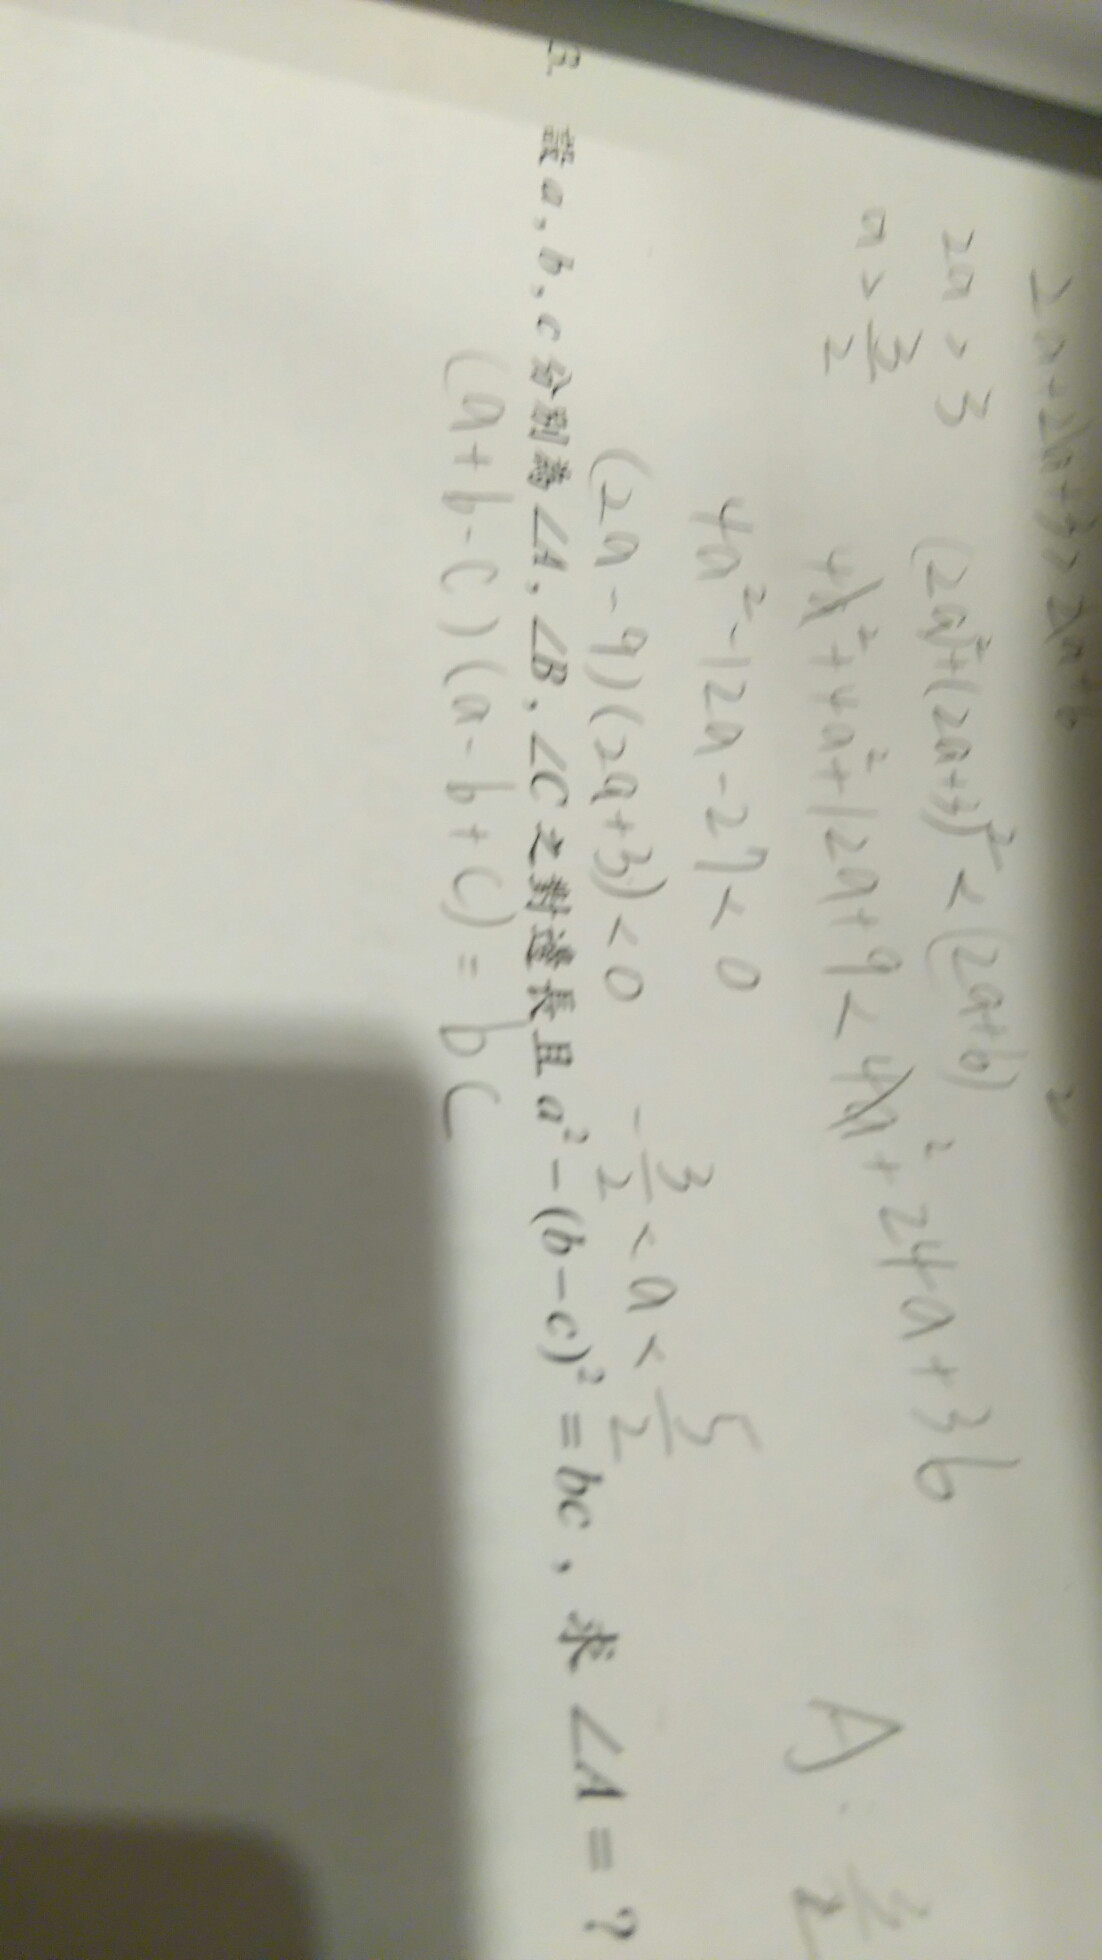 2a+2a+3>2a+6
2a>3
a>3/2
(2a)²+(2a+3)²<(2a+6)²
4a²+4a²+12a+9<4a²+24a+36
4a²-12a-27<0
(2a-9)(2a+3)<0
-3/2<a<
A:
設a,b,c分別為∠A,∠B,∠C之對邊長且a²-(b-c)²=bc,求∠A=?
(a+b-c)(a-b+c)=bc